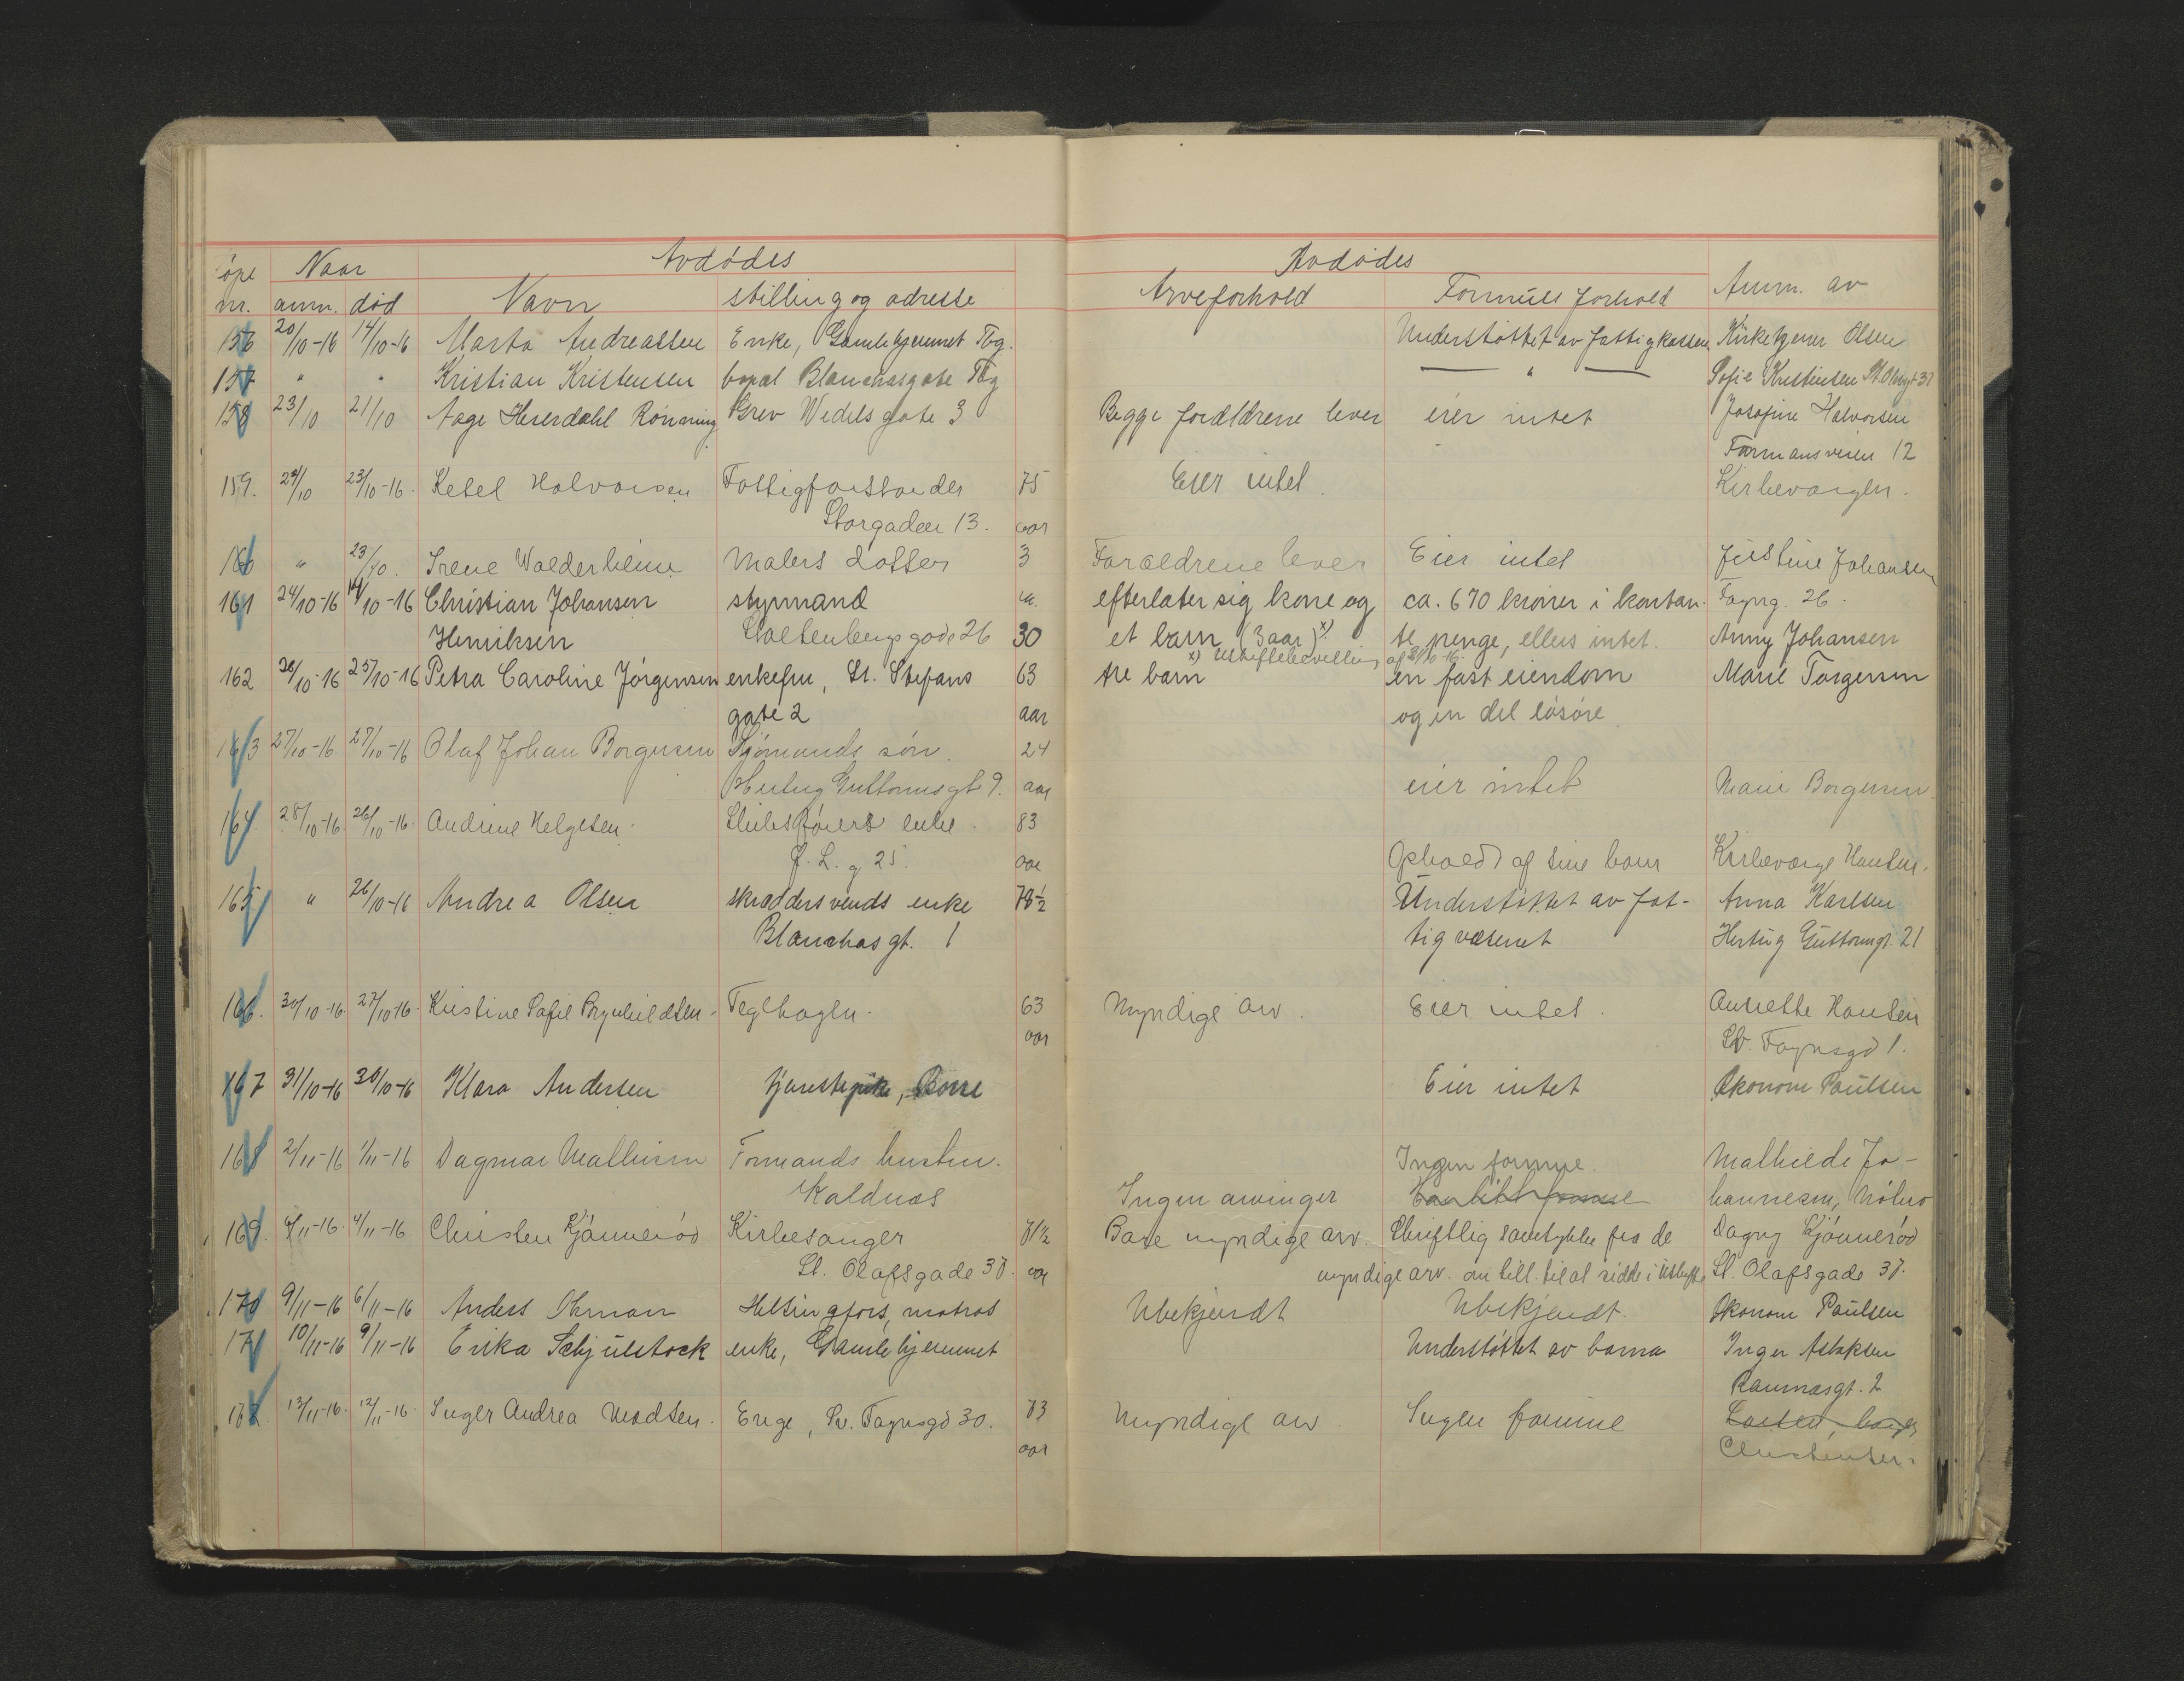 Avdødes Avdødes
nr. Naar Navn stilling og adresse Arveforhold Formues forhold Anm. av
anm. død
156 20/10-16 14/10-16 Marta Andreassen Enke, Gamlehjemmet Tbg. Understøttet av fattigkassen Kirketjener Olsen
157 " " Kristian Kristensen bopæl Blanchasgate Tbg — " — Sofie Kristensen St. Olavsgt 37
158 23/10 21/10 Aage Heierdahl Rønning Grev Wedels gate 3 Begge forældrene lever eier intet Josefine Halvorsen
Formansveien 12
159. 24/10 23/10-16. Ketel Halvorsen Fattigforstander 75 Eier intet. Kirkevergen.
Storgaden 13. aar
160 " 23/10. Irene Walderheim Malers datter 3 Forældrene lever Eier intet Justine Johansen
161 24/10-16 14/10-16 Christian Johansen styrmand efterlater sig kone og ca. 670 kroner i kontan- Faynsg. 26.
Henriksen Stoltenbergs gade 26 30 et barn (3 aar) x) te penge, ellers intet. Anny Johansen
x) Uskiftebevilling af 31/10-16.
162 26/10-16 25/10-16 Petra Caroline Jørgensen enkefru, St. Stefans 63 tre barn en fast eiendom Marie Torgersen
gate 2 aar og en del løsøre.
163 27/10-16 27/10-16 Olaf Johan Borgersen Sjømands søn. 24
Hertug Guttormsgt 9. aar eier intet Marie Borgersen.
164. 28/10-16 26/10-16. Andrine Helgesen. Skibsførers enke. 83
F. L. g 25. aar Opholdt af sine barn Kirkeverge Hansen.
165 " 26/10-16 Andrea Olsen skræddersvends enke 78½ Understøttet av fat- Anna Karlsen
Blanchas gt. 1 tigvæsenet Hertug Guttormgt. 21
166. 30/10-16 27/10-16. Kristine Sofie Brynhildsen. Teglhagen. 63 Myndige arv. Eier intet. Annette Hansen
aar Sv. Faynsgd 1.
167 31/10-16 30/10-16 Klara Andersen tjenestepike, Borre Eier intet Økonom Paulsen
168 2/11-16 1/11-16 Dagmar Mathisen Formands hustru. Ingen formue. Mathilde Jo-
Kaldnæs Ingen arvinger hannesen, Nøtterø
169. 6/11-16. 4/11-16 Christen Gjønnerød Kirkesanger 71½ Bare myndige arv. Skriftlig samtykke fra de Dagny Gjønnerød
St. Olafsgade 37. aar myndige arv. om till. til at sidde i uskifte St. Olafsgade 37.
170 9/11-16 6/11-16 Anders Ohman Helsingfors, matros Ubekjendt Ubekjendt. Økonom Paulsen
171 10/11-16 9/11-16 Erika Schjulstock enke, Gamlehjemmet Understøttet av barna Inger Aslaksen
Ramnæsgt. 2
172. 13/11-16. 12/11-16. Inger Andrea Madsen. Enge, Sv. Faynsgd 30. 73 Myndige arv Ingen formue
aar Christensen.